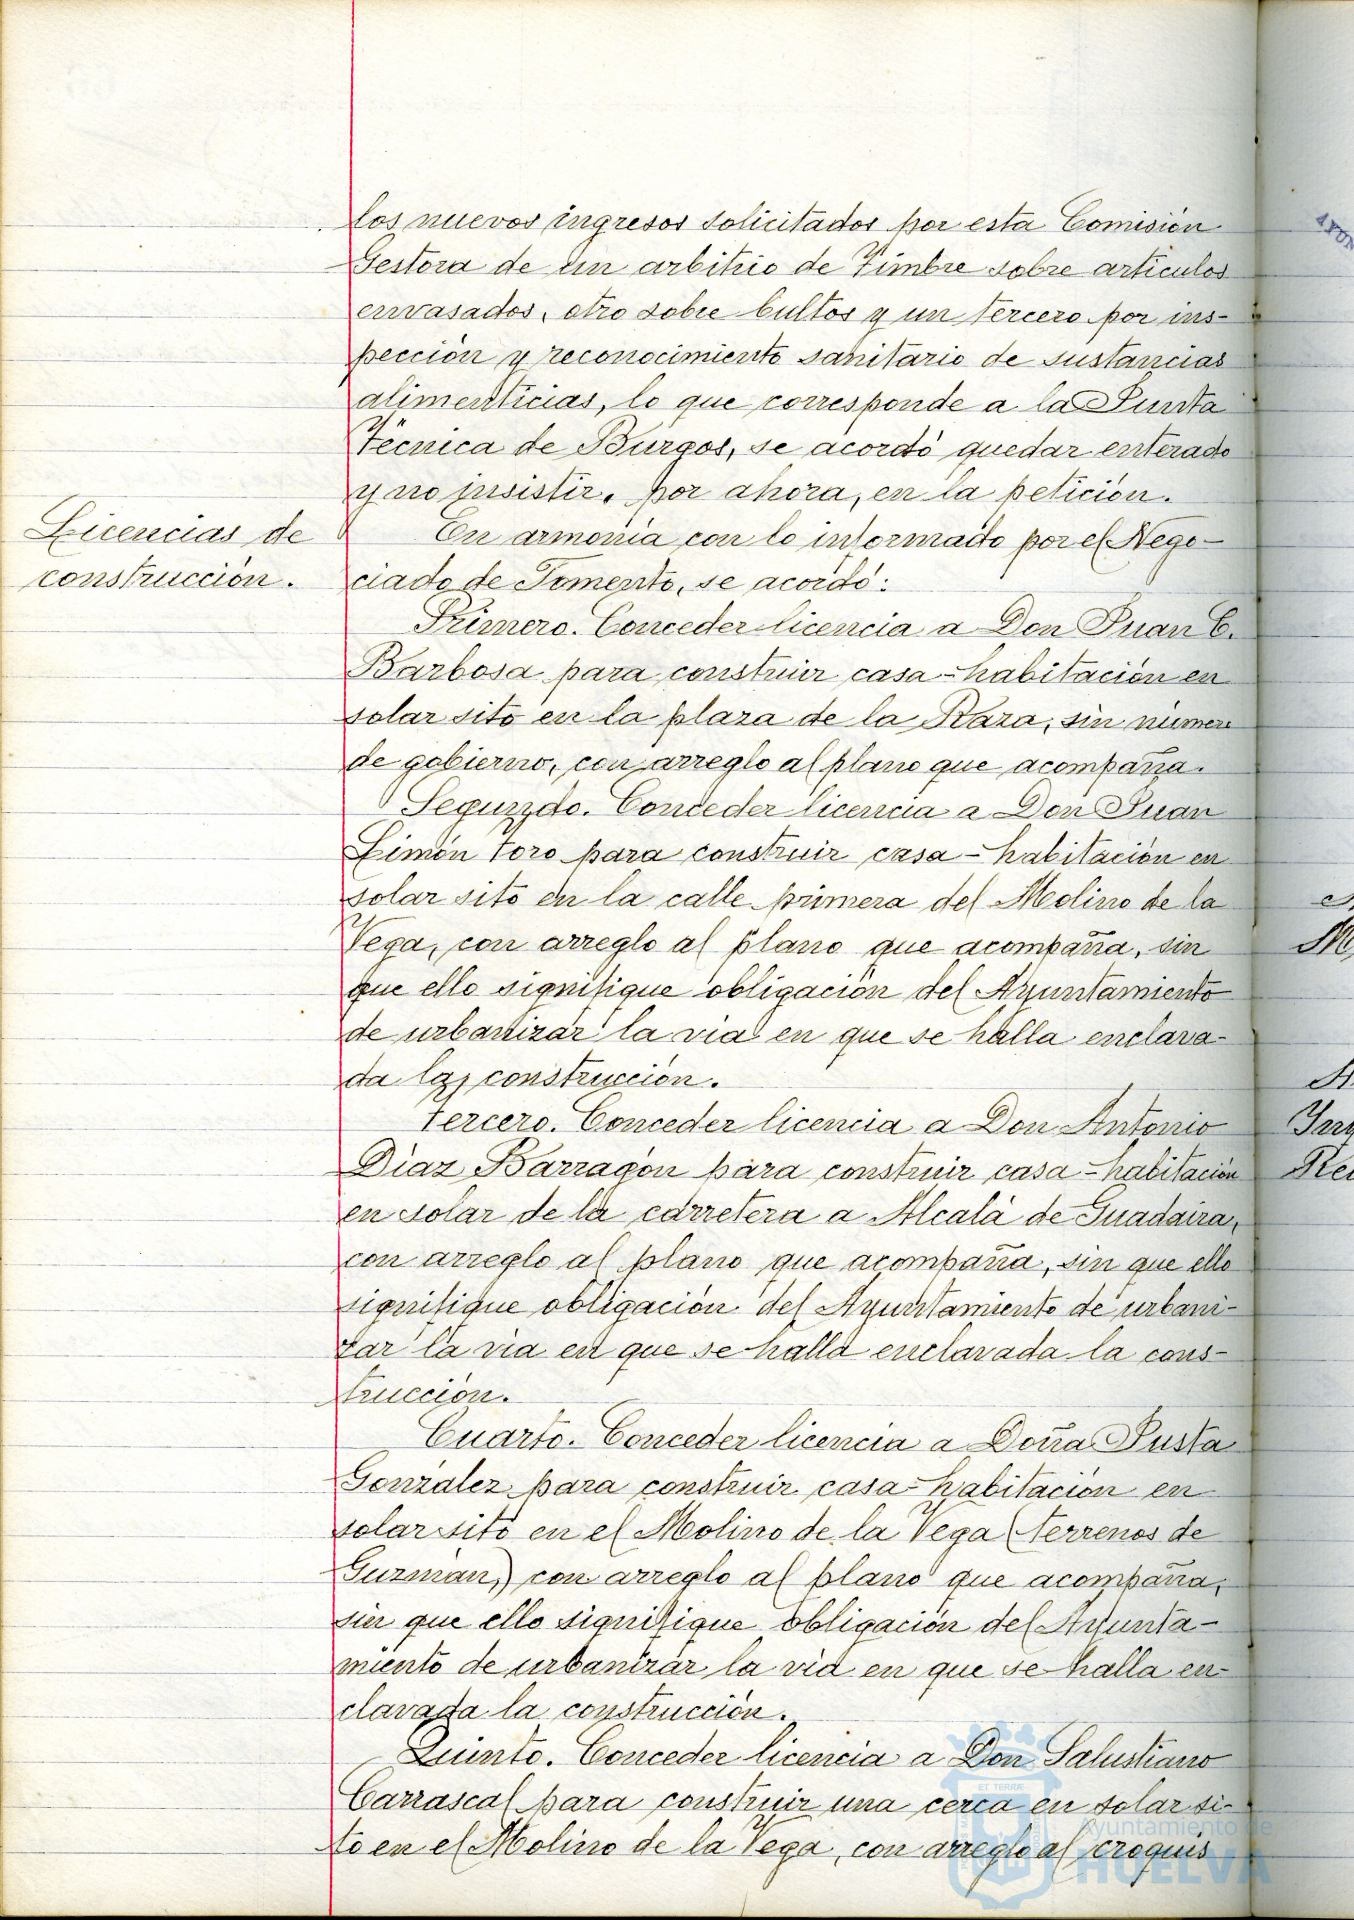 los nuevos ingresos solicitados por esta Comisión
Gestora de un arbitrio de Timbre sobre articulos
envasados, otro sobre bultos y un tercero por ins-
pección y reconocimiento sanitario de sustancias
alimenticias, lo que corresponde a la Junta
Técnica de Burgos, se acordó quedar enterado
y no insistir, por ahora, en la petición.
Licencias de
construcción.
En armonía con lo informado por el Nego-
ciado de Fomento, se acordó:
Primero. Conceder licencia a Don Juan C.
Barbosa para construir casa-habitación en
solar sito en la plaza de la Raza, sin número
de gobierno, con arreglo al plano que acompaña.
Segundo. Conceder licencia a Don Juan
Limón Toro para construir casa-habitación en
solar sito en la calle primera del Molino de la
Vega, con arreglo al plano que acompaña, sin
que ello signifique obligación del Ayuntamiento
de urbanizar la vía en que se halla enclava-
da la construcción.
Tercero. Conceder licencia a Don Antonio
Díaz Barragón para construir casa-habitación
en solar de la carretera a Alcalá de Guadaira,
con arreglo al plano que acompaña, sin que ello
signifique obligación del Ayuntamiento de urbani-
zar la vía en que se halla enclavada la cons-
trucción.
Cuarto. Conceder licencia a Doña Justa
González para construir casa-habitación en
solar sito en el Molino de la Vega (terrenos de
Guzmán,) con arreglo al plano que acompaña,
sin que ello signifique obligación del Ayunta-
miento de urbanizar la vía en que se halla en-
clavada la construcción.
Quinto. Conceder licencia a Don Salustiano
Carrascal para construir una cerca en solar si-
to en el Molino de la Vega, con arreglo al croquis
Ayuntamiento de
HUELVA